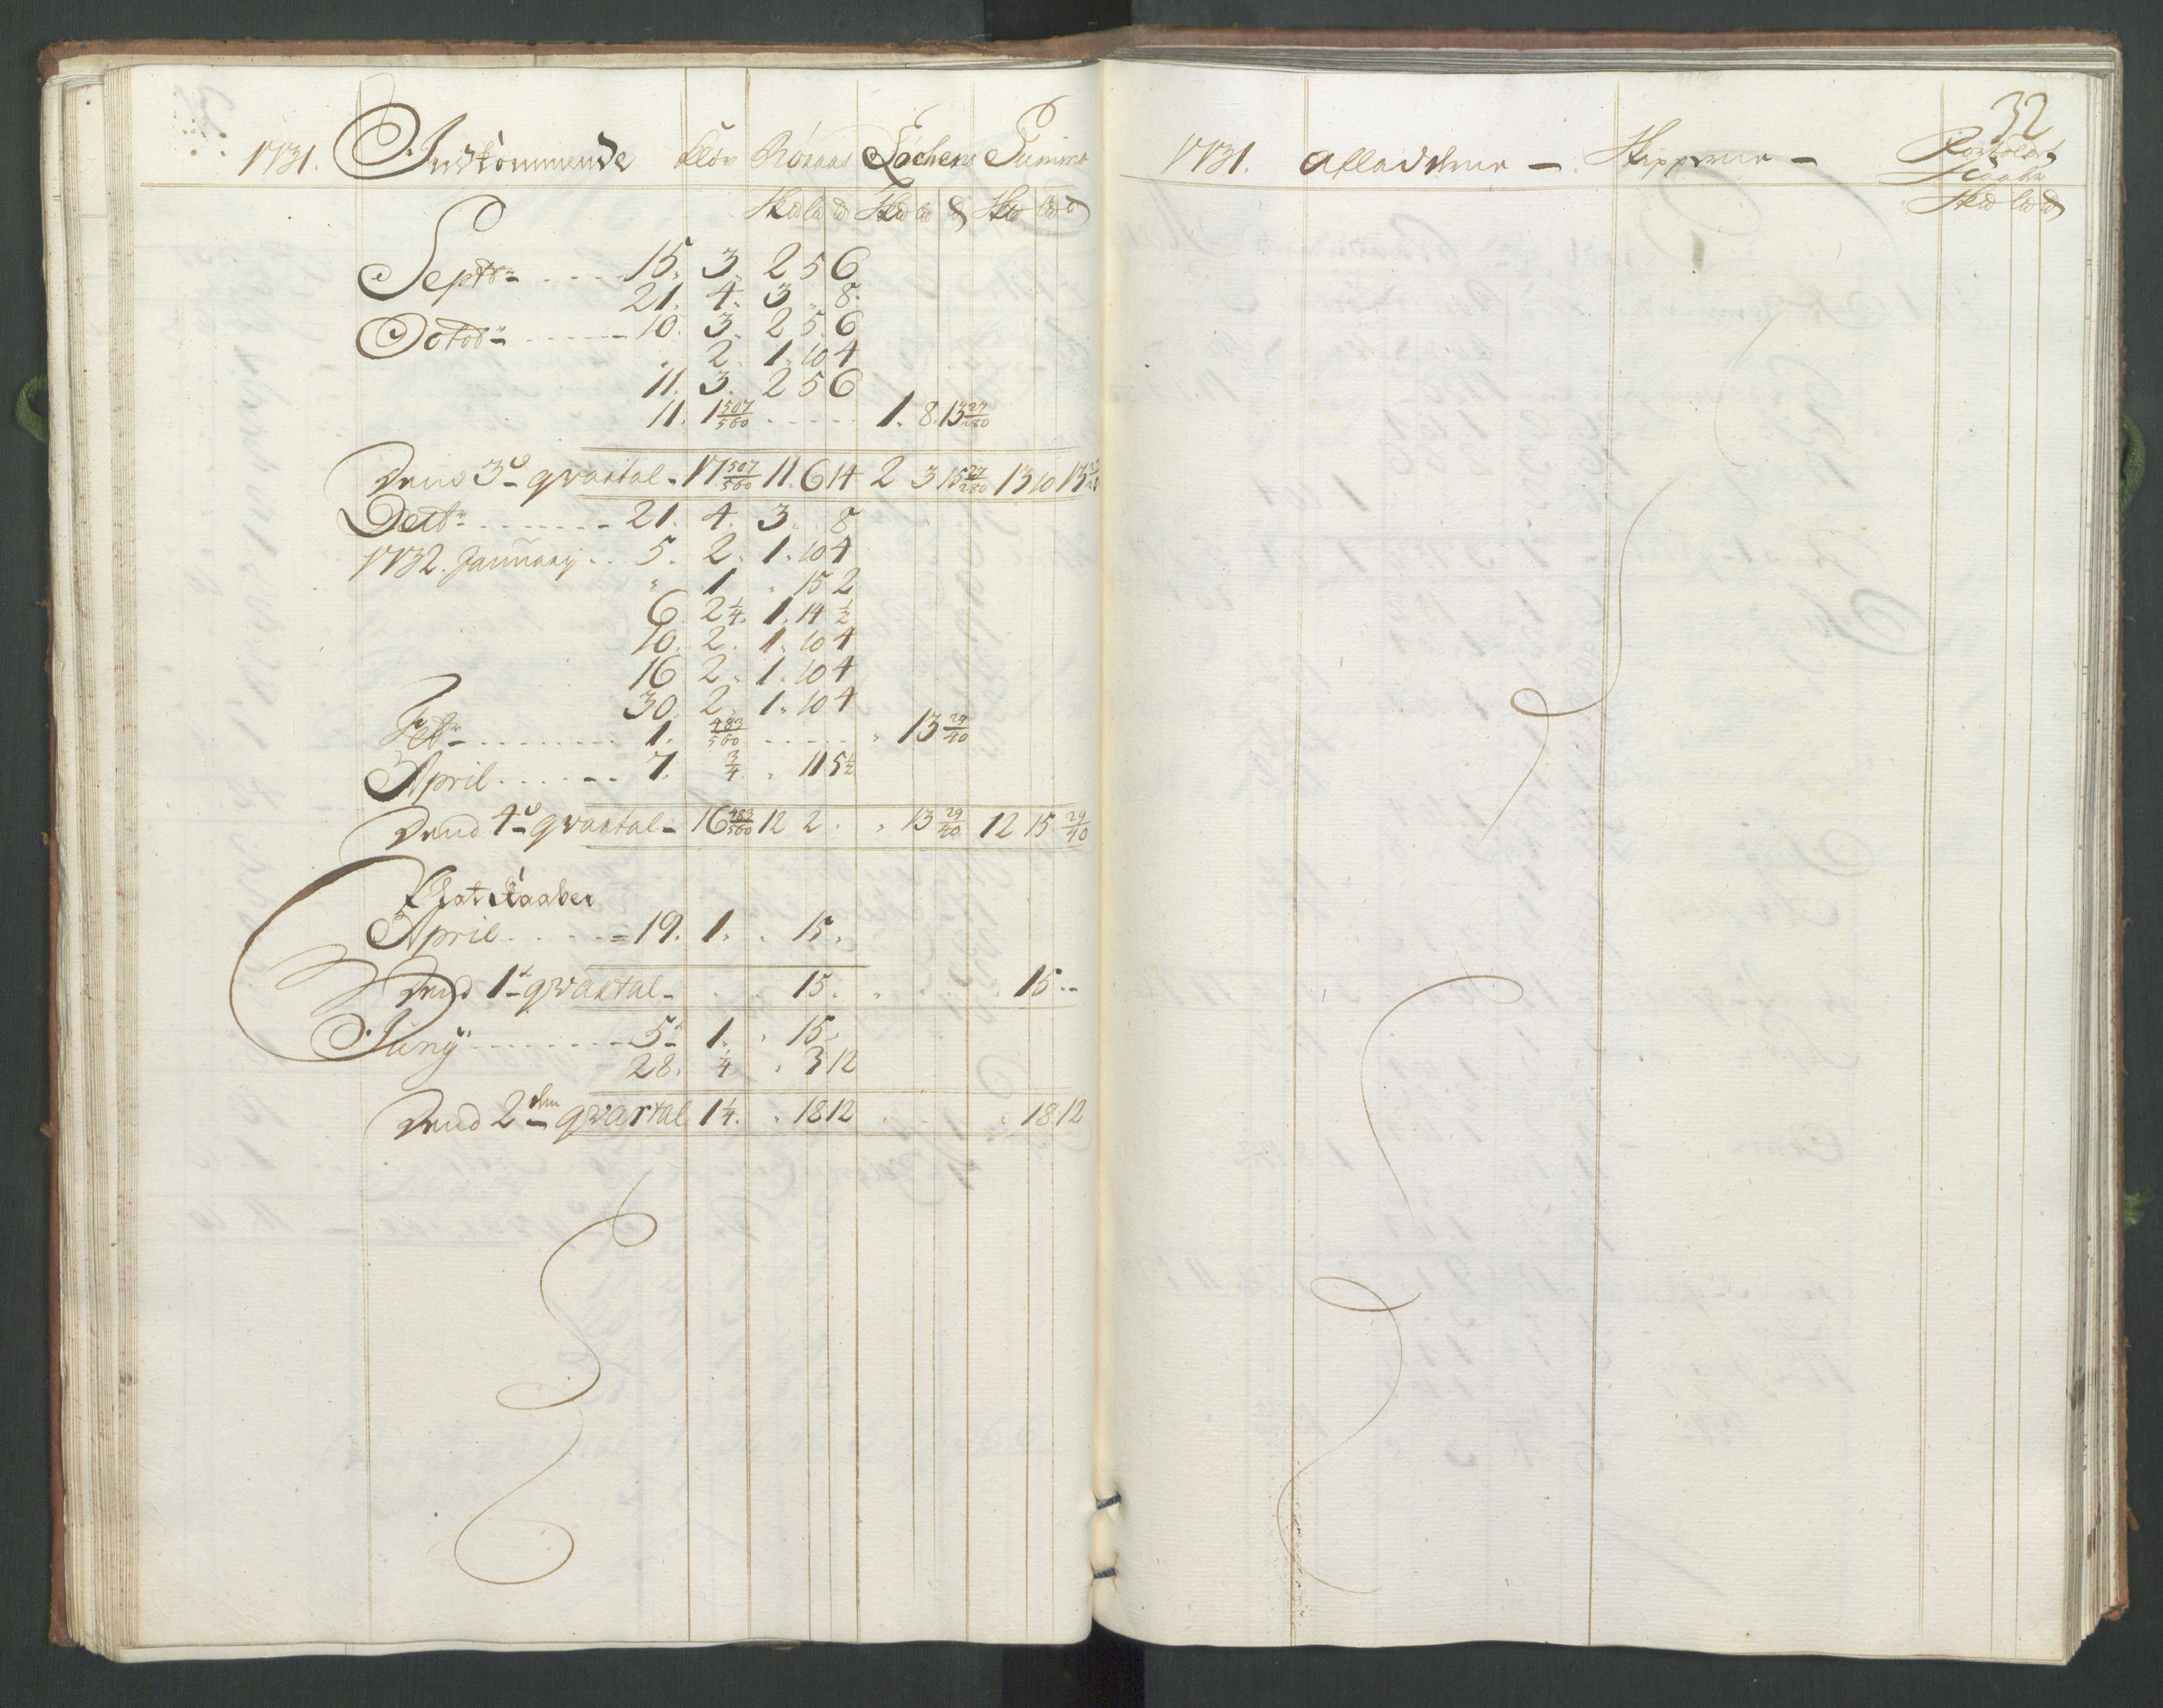 1731. Indkommende Kløv Röraas Löchens Summa
Skd ld d Skd ld d Skd ld d
Septbr 15. 3. 2 5 6
21. 4. 3 " 8.
Octob 10. 3. 2 5 6
" 2. 1. 10 4
11. 3. 2 5 6
11. 1 507/560 1. 8. 13 27/280
Dend 3de qvartal 17 507/560 11. 6 14 2 3 15 27/280 13 10 13
Decbr 21. 4. 3. 8
1732. January 5. 2. 1. 10 4
" 1 " 15 2
6. 2 1/4. 1. 14 1/2
10. 2. 1. 10 4
16 2. 1. 10 4
30. 2. 1. 10 4
Febr 1. 483/560 " 13 29/40
April 7. 3/4. " 11 5 1/2
Dend 4de qvartal 16 483/560 12 2 " " 13 29/40 12 15 29/40
Plat Kaaber
April 19. 1. " 15.
Dend 1st qvartal 15. 15
Juny 5t 1. " 15.
28. 1/4 " 3 12
Dend 2den qvartal 1 1/4. " 18 12 " 18 12
32
1731. Afladerne Skipperne
Kaaber
Skd ld d